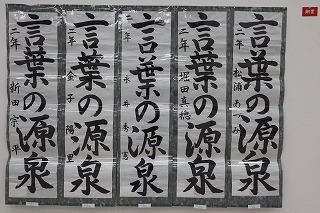 言葉の源泉
二年 松浦 あつみ
言葉の源泉
二年 堀田真穂
言葉の源泉
二年 永井秀
言葉の源泉
二年 金子陽里
言葉の源泉
二年 新田宗平